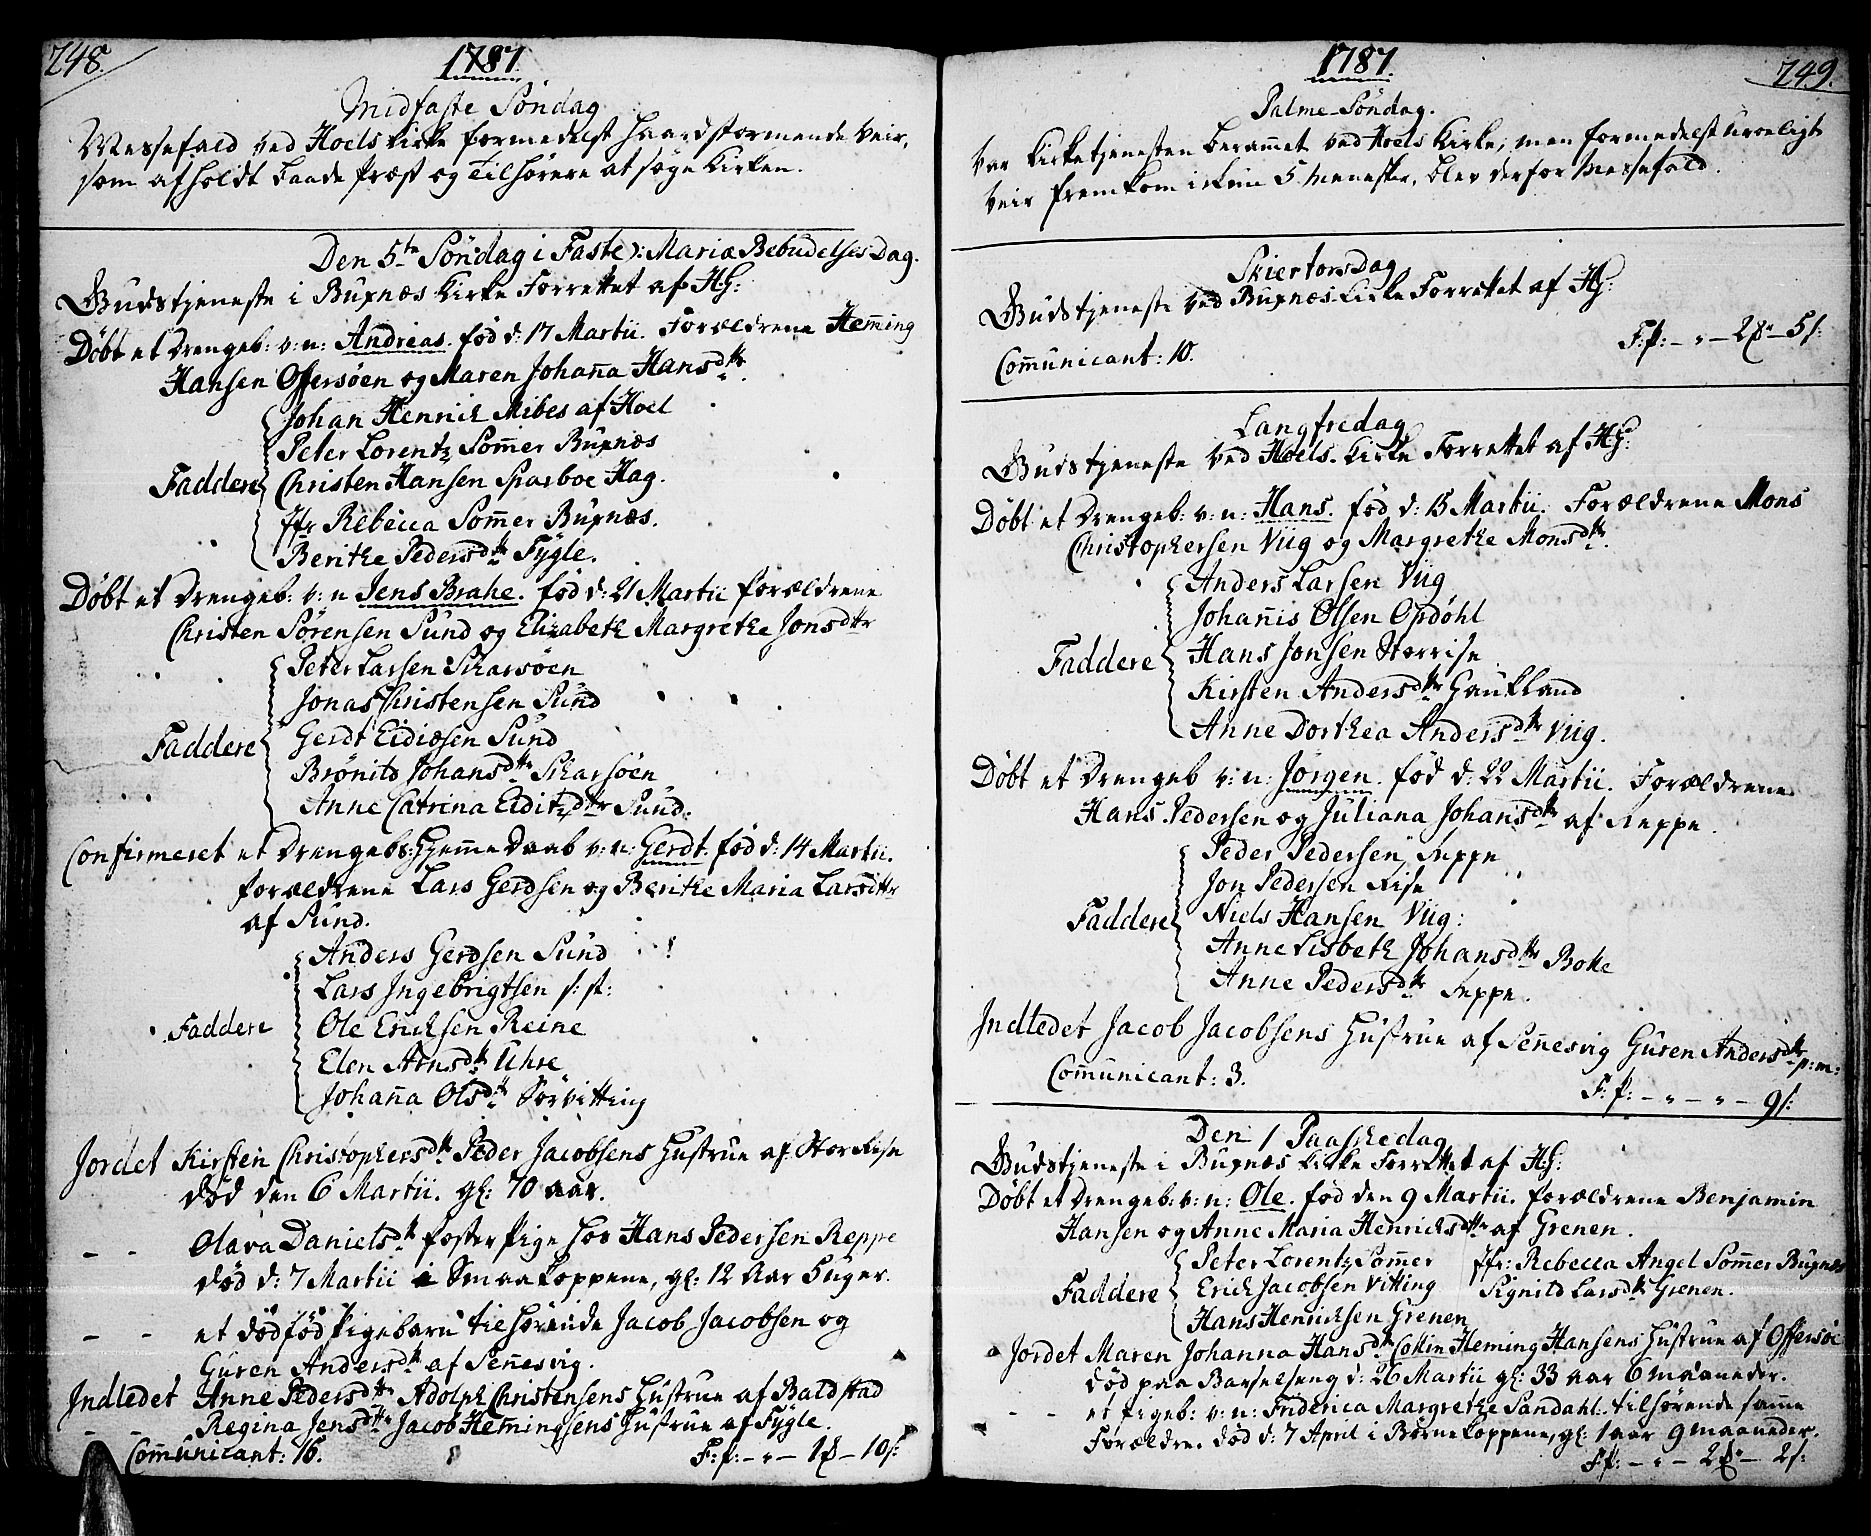 248.
1787
Midfaste Söndag
Messefald ved Hoels Kirke formedelst haardstormende Veir,
som afholdt baade Præst og Tilhörere at söge Kirken.
Den 5te Söndag i Faste ): Mariæ Bebudelses Dag.
Gudstjeneste i Buxnæs Kirke Forrettet af HG:
Döbt et Drengeb: v: n: Andreas. föd d: 17 Martii. Forældrene Heming
Hansen Offersöen og Maren Johanna Hansdtr.
Johan Hennich Mibes af Hoel
Peter Lorentz Sommer Buxnæs
Faddere Christen Hansen Sparboe Hag.
Jfr Rebecca Sommer Buxnæs.
Berithe Pedersdtr Fygle.
Döbt et Drengeb: v: n Jens Brahe. föd d: 21 Martii forældrene
Christen Sörensen Sund og Elizabeth Margrethe Jonsdtr
Peter Larsen Skarsöen
Jonas Christensen Sund
Faddere Gerdt Eidiesen Sund
Brönild Johansdtr Skarsöen
Anne Catrina Eiditzdtr Sund.
Confirmeret et Drengebs: Hjemme Daab v: n: Gerdt föd d: 14 Martii.
forældrene Lars Gerdsen og Berithe Maria Larsdtr
af Sund.
Anders Gerdsen Sund
Lars Ingebrigtsen s: st:
Faddere Ole Erichsen Reine
Elen Arnsdtr Uhre
Johanna Olsdtr Sörvitting
Jordet Kirsten Christophersdtr Peder Jacobsens Hustrue af StorRise
död den 6 Martii. gl: 70 aar.
- - Olava Danielsdtr fosterPige hos Hans Pedersen Reppe
död d: 7 Martii i Smaakoppene, gl: 12 Aar 6 uger.
- - et dödföd Pigebarn tilhörende Jacob Jacobsen og
Guren Andersdtr af Sennesvig.
Indledet Anne Pedersdtr Adolph Christensens Hustrue af Baldstad
- - Regina Jensdtr Jacob Hemmingsens Hustrue af Fygle.
Communicant: 16. F: p: - " - 1 ß - 10 s:
249.
1787
Palme Söndag.
Var Kirketjenesten berammet ved Hoels Kirke, men formedelst uroeligt
Veir fremkom ickun 5 Menesker, blev derfor Messefald.
Skiertorsdag
Gudstjeneste ved Buxnæs Kirke Forrettet af HG:
Communicant: 10. F: p: - " - 2 ß - 5 s:
Langfredag
Gudstjeneste ved Hoels Kirke Forrettet af HG:
Döbt et Drengeb: v: n: Hans. föd d: 15 Martii. Forældrene Mons
Christophersen Viig og Margrethe Monsdtr.
Anders Larsen Viig
Johannis Olsen Opdöhl
Faddere Hans Jonsen Storrise
Kirsten Andersdtr Haukland
Anne Dorthea Andersdtr Viig.
Döbt et Drengeb v: n: Jörgen. föd d: 22 Martii. Forældrene
Hans Pedersen og Juliana Johansdtr af Reppe.
Peder Pedersen Reppe
Jon Pedersen Rise
Faddere Niels Hansen Viig:
Anne Lisbeth Johansdtr Bolle
Anne Pedersdtr Reppe.
Indledet Jacob Jacobsens Hustrue af Sennesvig Guren Andersdtr p: m:
Communicant: 3. F: p: - " - " - 9 s:
Den 1 Paaschedag
Gudstjeneste i Buxnæs Kirke Forrettet af HG:
Döbt et Drengeb: v: n: Ole. föd den 9 Martii. forældrene Benjamin
Hansen og Anne Maria Henrichsdtr af Grenen.
Peter Lorentz Sommer Jfr: Rebecca Angel Sommer Buxnæs
Faddere Erich Jacobsen Vitting Signild Larsdtr Grenen.
Hans Henrichsen Grenen
Jordet Maren Johanna Hansdtr Collin Heming Hansens Hustrue af Offersöe
död paa Barselseng d: 26 Martii gl: 33 aar 6 maaneder.
- - et Pigeb: v: n: Friderica Margrethe Sandahl. tilhörende samme
Forældre. död d: 7 April i Börnekoppene, gl: 1 aar 9 maaneder.
F: p: - " - 2 ß - 2 s: